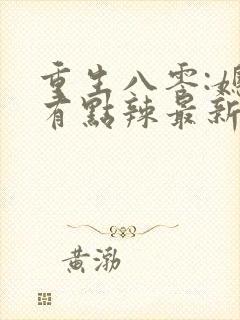 重生八零:媳
有點辣最新
黃渤